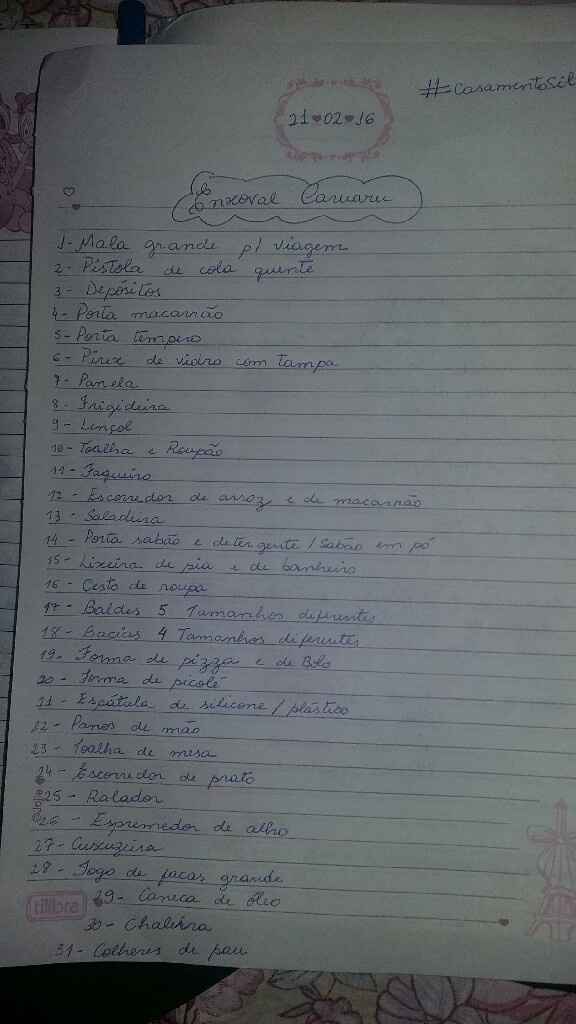 #CasamentoSil
21♥02♥16
Enxoval Caruaru
1- Mala grande p/ viagem
2- Pistola de cola quente
3- Depósitos
4- Porta macarrão
5- Porta tempero
6- Pirex de vidro com tampa
7- Panela
8- Frigideira
9- Lençol
10- Toalha e Roupão
11- Faqueiro
12- Escorredor de arroz e de macarrão
13- Saladeira
14- Porta sabão e detergente/Sabão em pó
15- Lixeira de pia e de banheiro
16- Cesto de roupa
17- Baldes 5 Tamanhos diferentes
18- Bacias 4 Tamanhos diferentes
19- Forma de pizza e de Bolo
20- Forma de picolé
21- Espátula de silicone/plástico
22- Panos de mão
23- Toalha de mesa
24- Escorredor de prato
25- Ralador
26- Espremedor de alho
27- Cuscuzeira
28- Jogo de facas grande
29- Caneca de óleo
tilibra
30- Chaleira
31- Colheres de pau